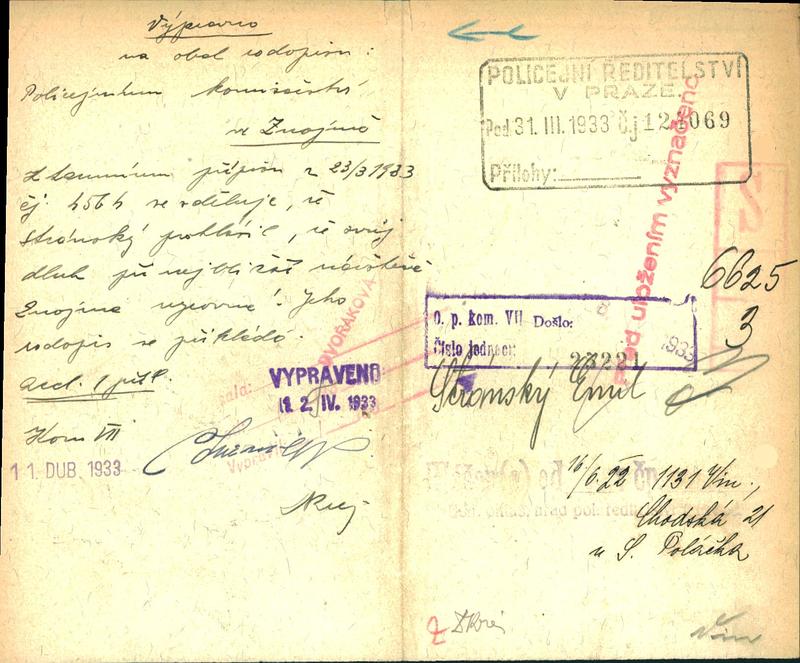 Výpravno
na obal rodopisu:
Policejnímu komisařství
ve Znojmě
K tamnímu přípisu z 23/3 1933
čj. 4564 se sděluje, že
Stránský prohlásil, že svůj
dluh při nejbližší návštěvě
Znojma vyrovná. Jeho
rodopis se přikládá.
Kom VII
11. DUB. 1933
VYPRAVENO
12. IV. 1933
DVOŘÁKOVÁ
POLICEJNÍ ŘEDITELSTVÍ
V PRAZE
Pod. 31. III. 1933 čj. 124069
Přílohy:
Před uložením vyznačeno
6625
3
o. p. kom. VII Došlo:
Číslo jednací:
1933
Stránský Emil
16/6.22 1131 Vin.,
Chodská 21
u S. Poláčka